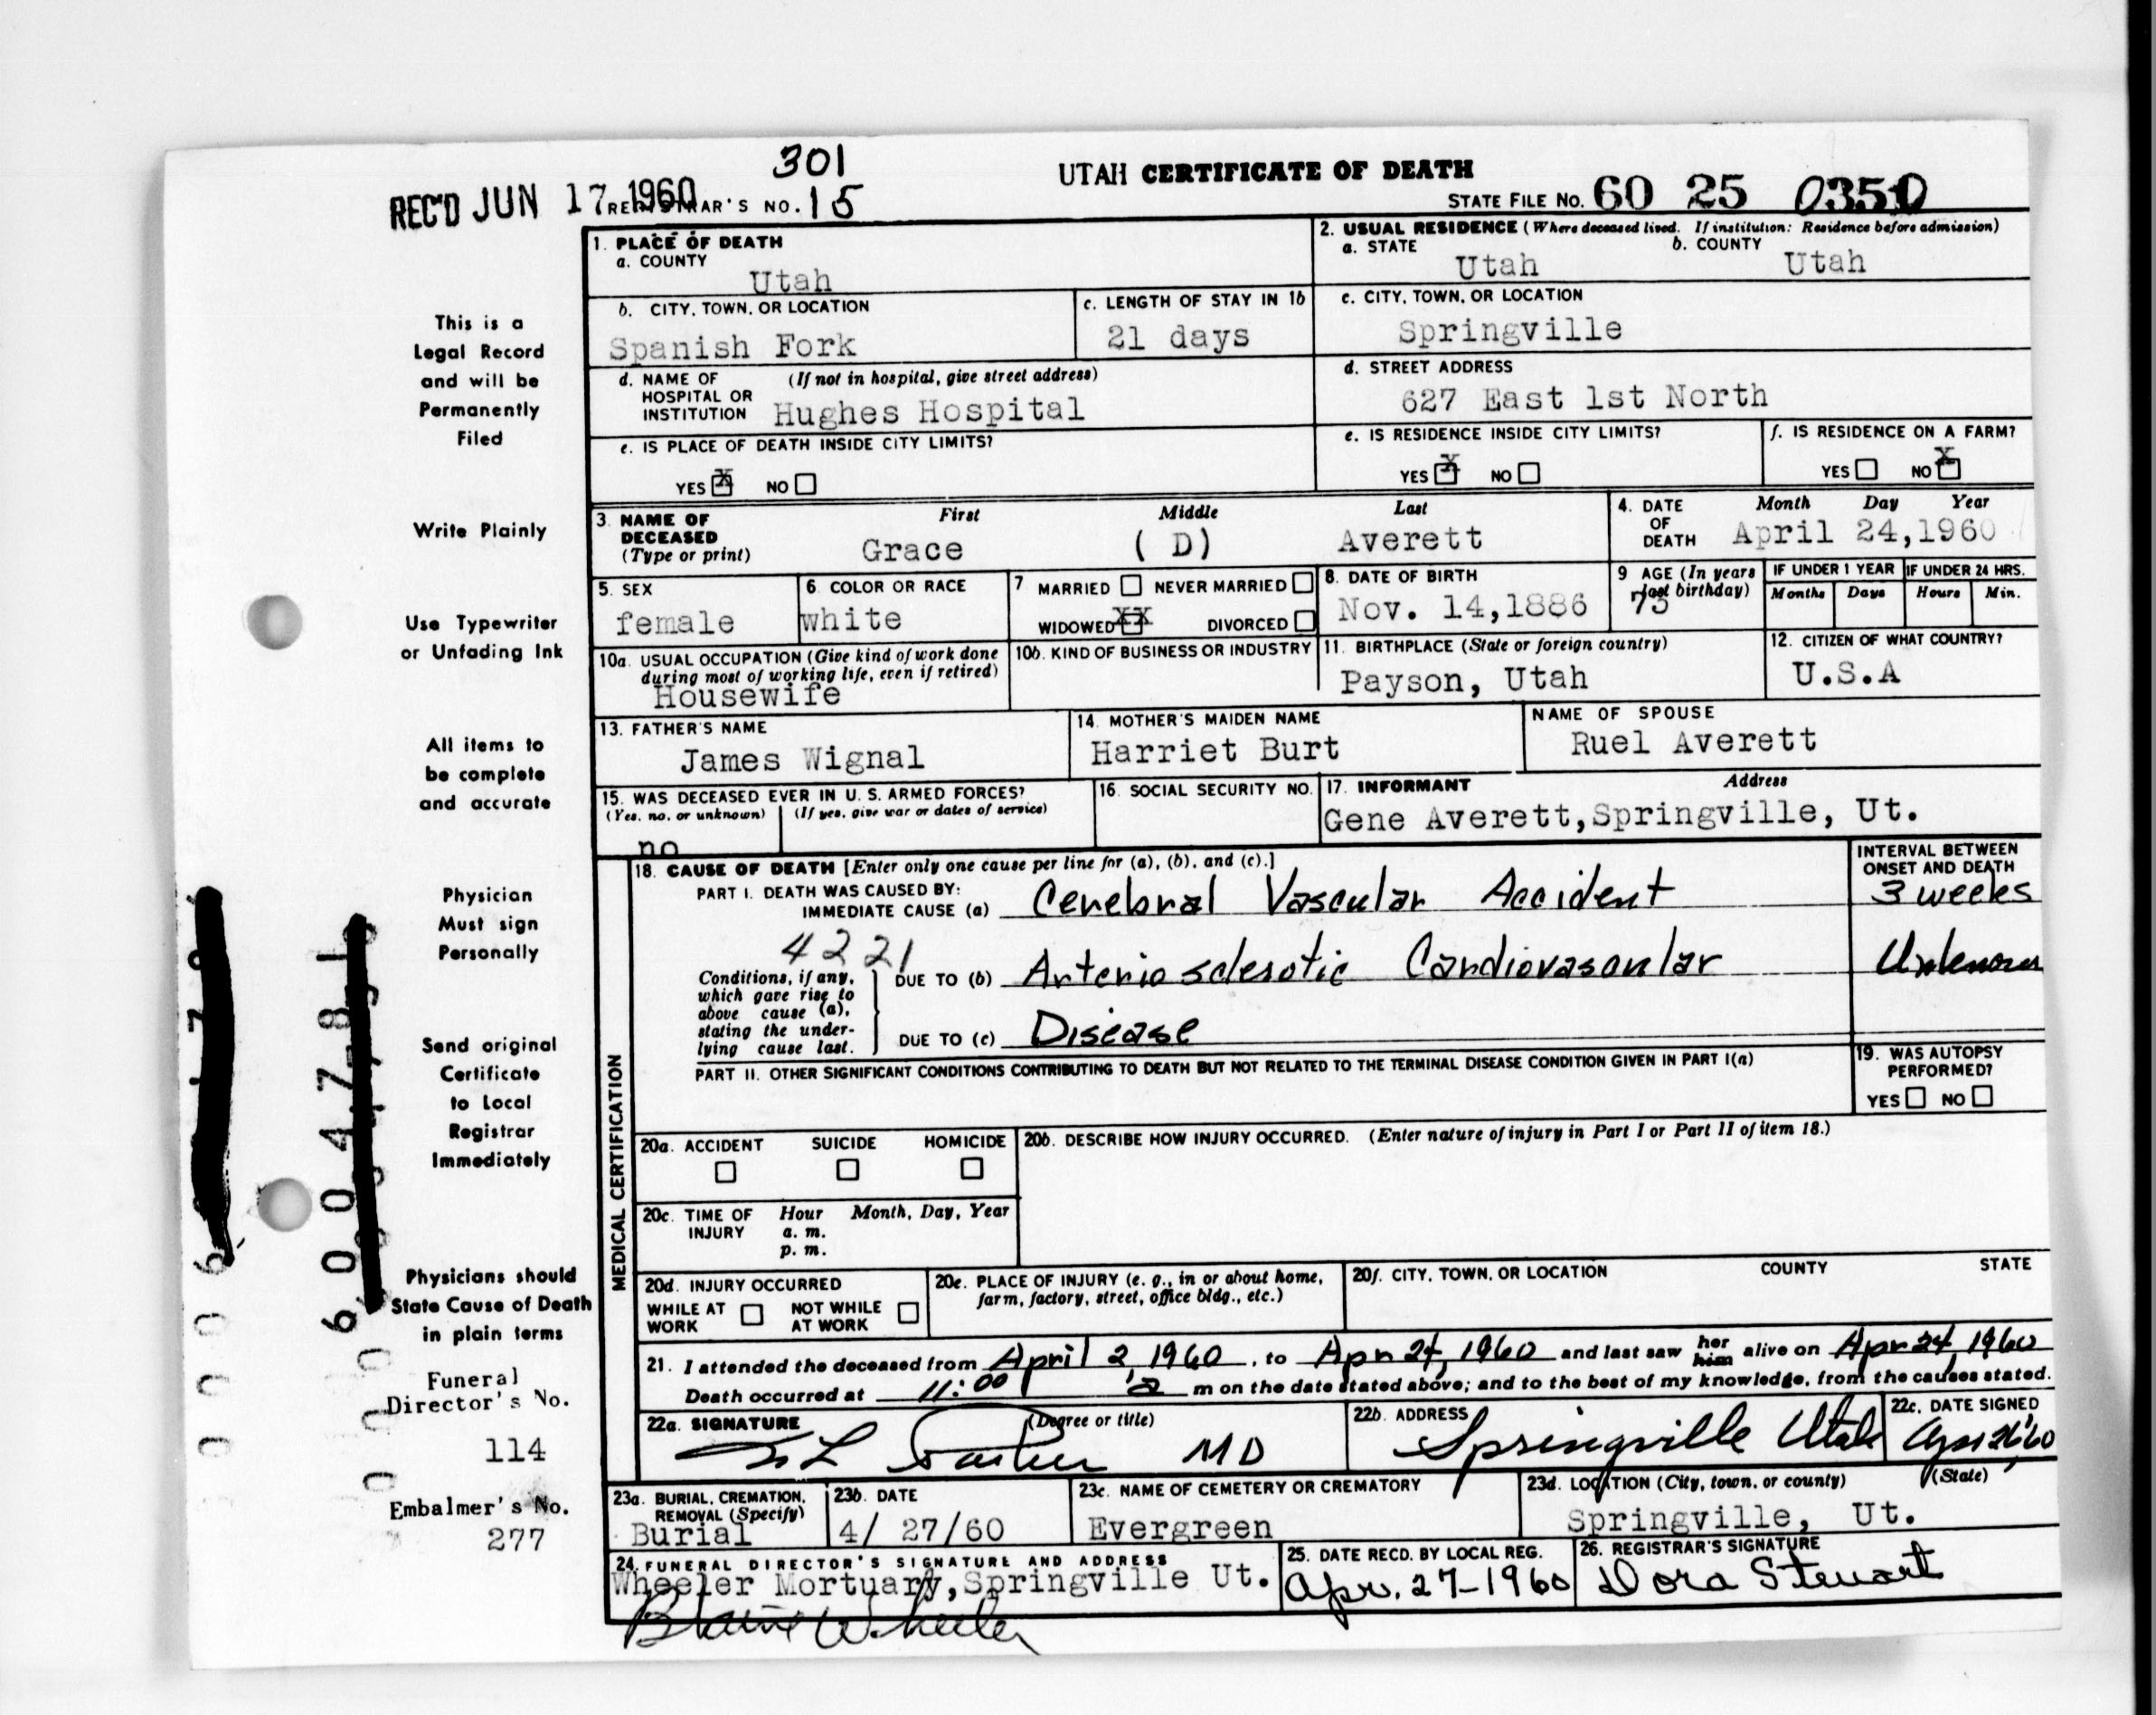 301
UTAH CERTIFICATE OF DEATH
REC'D JUN 17 1960 REGISTRAR'S NO. 15
STATE FILE NO. 60 25 0350
1. PLACE OF DEATH
a. COUNTY
Utah
2. USUAL RESIDENCE (Where deceased lived. If institution: Residence before admission)
a. STATE b. COUNTY
Utah Utah
b. CITY, TOWN, OR LOCATION
Spanish Fork
c. LENGTH OF STAY IN 1b
21 days
c. CITY, TOWN, OR LOCATION
Springville
d. NAME OF HOSPITAL OR INSTITUTION (If not in hospital, give street address)
Hughes Hospital
d. STREET ADDRESS
627 East 1st North
e. IS PLACE OF DEATH INSIDE CITY LIMITS?
YES X NO
e. IS RESIDENCE INSIDE CITY LIMITS?
YES X NO
f. IS RESIDENCE ON A FARM?
YES NO X
3. NAME OF DECEASED (Type or print)
First Middle Last
Grace (D) Averett
4. DATE OF DEATH Month Day Year
April 24,1960
5. SEX
female
6. COLOR OR RACE
white
7 MARRIED NEVER MARRIED
WIDOWED XX DIVORCED
8. DATE OF BIRTH
Nov. 14,1886
9 AGE (In years last birthday)
73
IF UNDER 1 YEAR IF UNDER 24 HRS.
Months Days Hours Min.
10a. USUAL OCCUPATION (Give kind of work done during most of working life, even if retired)
Housewife
10b. KIND OF BUSINESS OR INDUSTRY
11. BIRTHPLACE (State or foreign country)
Payson, Utah
12. CITIZEN OF WHAT COUNTRY?
U.S.A
13. FATHER'S NAME
James Wignal
14. MOTHER'S MAIDEN NAME
Harriet Burt
NAME OF SPOUSE
Ruel Averett
15. WAS DECEASED EVER IN U. S. ARMED FORCES?
(Yes, no, or unknown) (If yes, give war or dates of service)
no
16. SOCIAL SECURITY NO.
17. INFORMANT Address
Gene Averett,Springville, Ut.
MEDICAL CERTIFICATION
18. CAUSE OF DEATH [Enter only one cause per line for (a), (b), and (c).]
INTERVAL BETWEEN ONSET AND DEATH
PART I. DEATH WAS CAUSED BY:
IMMEDIATE CAUSE (a) Cerebral Vascular Accident 3 weeks
4221
Conditions, if any, which gave rise to above cause (a), stating the underlying cause last.
DUE TO (b) Arterio sclerotic Cardiovascular Unknown
DUE TO (c) Disease
PART II. OTHER SIGNIFICANT CONDITIONS CONTRIBUTING TO DEATH BUT NOT RELATED TO THE TERMINAL DISEASE CONDITION GIVEN IN PART I(a)
19. WAS AUTOPSY PERFORMED?
YES NO
20a. ACCIDENT SUICIDE HOMICIDE
20b. DESCRIBE HOW INJURY OCCURRED. (Enter nature of injury in Part I or Part II of item 18.)
20c. TIME OF INJURY Hour Month, Day, Year
a. m.
p. m.
20d. INJURY OCCURRED
WHILE AT WORK NOT WHILE AT WORK
20e. PLACE OF INJURY (e. g., in or about home, farm, factory, street, office bldg., etc.)
20f. CITY, TOWN, OR LOCATION COUNTY STATE
21. I attended the deceased from April 2 1960, to Apr 24, 1960 and last saw her him alive on Apr 24, 1960
Death occurred at 11:00 a m on the date stated above; and to the best of my knowledge, from the causes stated.
22a. SIGNATURE (Degree or title)
MD
22b. ADDRESS
Springville Utah
22c. DATE SIGNED
23a. BURIAL, CREMATION, REMOVAL (Specify)
Burial
23b. DATE
4/ 27/60
23c. NAME OF CEMETERY OR CREMATORY
Evergreen
23d. LOCATION (City, town, or county) (State)
Springville, Ut.
24. FUNERAL DIRECTOR'S SIGNATURE AND ADDRESS
Wheeler Mortuary,Springville Ut.
Blaine Wheeler
25. DATE RECD. BY LOCAL REG.
Apr. 27-1960
26. REGISTRAR'S SIGNATURE
Dora Stewart
This is a
Legal Record
and will be
Permanently
Filed
Write Plainly
Use Typewriter
or Unfading Ink
All items to
be complete
and accurate
Physician
Must sign
Personally
Send original
Certificate
to Local
Registrar
Immediately
Physicians should
State Cause of Death
in plain terms
Funeral
Director's No.
114
Embalmer's No.
277